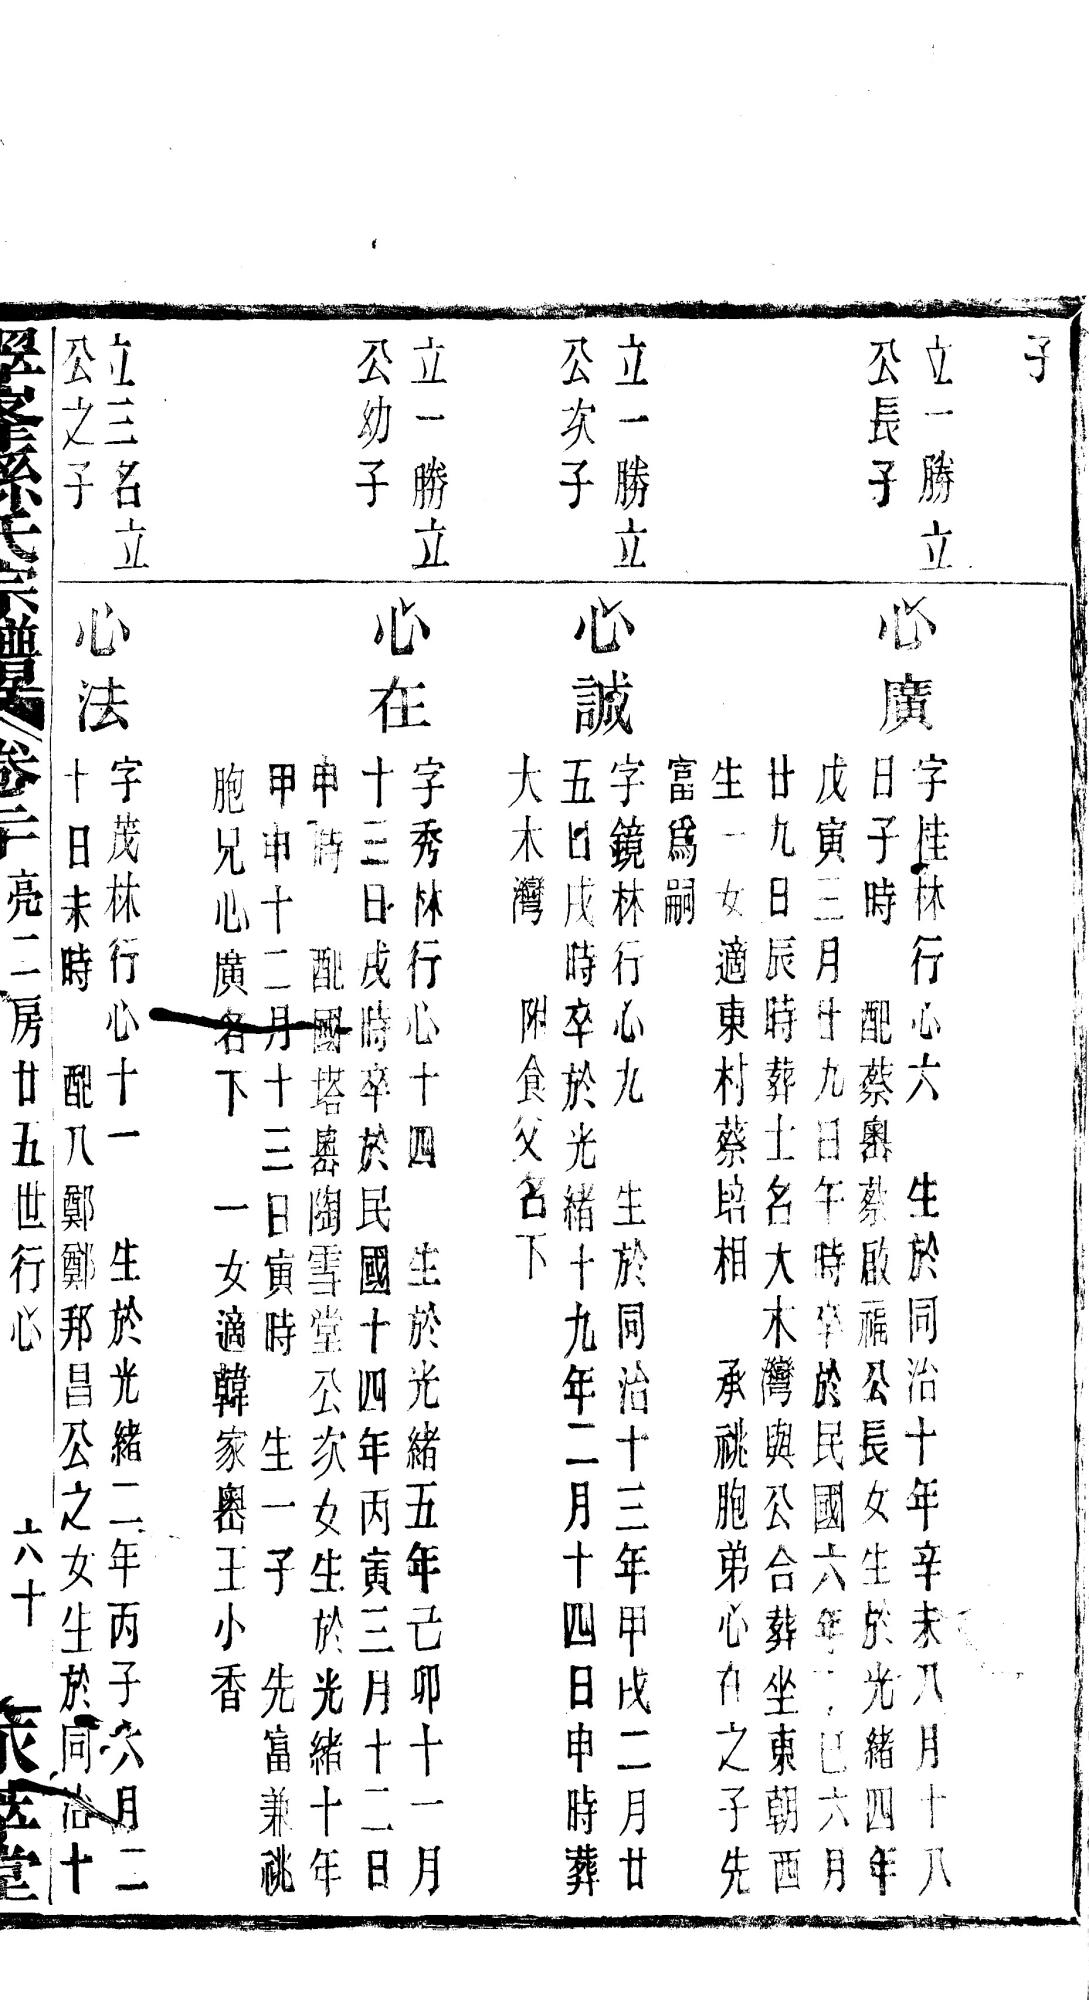 子
立一勝立
公長子
心廣
字桂林行心六 生於同治十年辛未八月十八
日子時 配蔡嶴蔡啟福公長女生於光緒四年
戊寅三月廿九日午時卒於民國六年丁巳六月
廿九日辰時葬土名大木灣與公合葬坐東朝西
生一女適東村蔡培相 承祧胞弟心在之子先
富為嗣
立一勝立
公次子
心誠
字鏡林行心九 生於同治十三年甲戌二月廿
五日戌時卒於光緒十九年二月十四日申時葬
大木灣 附食父名下
立一勝立
公幼子
心在
字秀林行心十四 生於光緒五年己卯十一月
十三日戌時卒於民國十四年丙寅三月十二日
申時 配國塔嶴陶雪堂公次女生於光緒十年
甲申十二月十三日寅時 生一子 先富兼祧
胞兄心廣名下 一女適韓家嶴王小香
立三名立
公之子
心法
字茂林行心十一 生於光緒二年丙子六月二
十日未時 配八鄭鄭邦昌公之女生於同治十
峯孫氏宗譜 卷二 亮二房廿五世行心 六十 堂